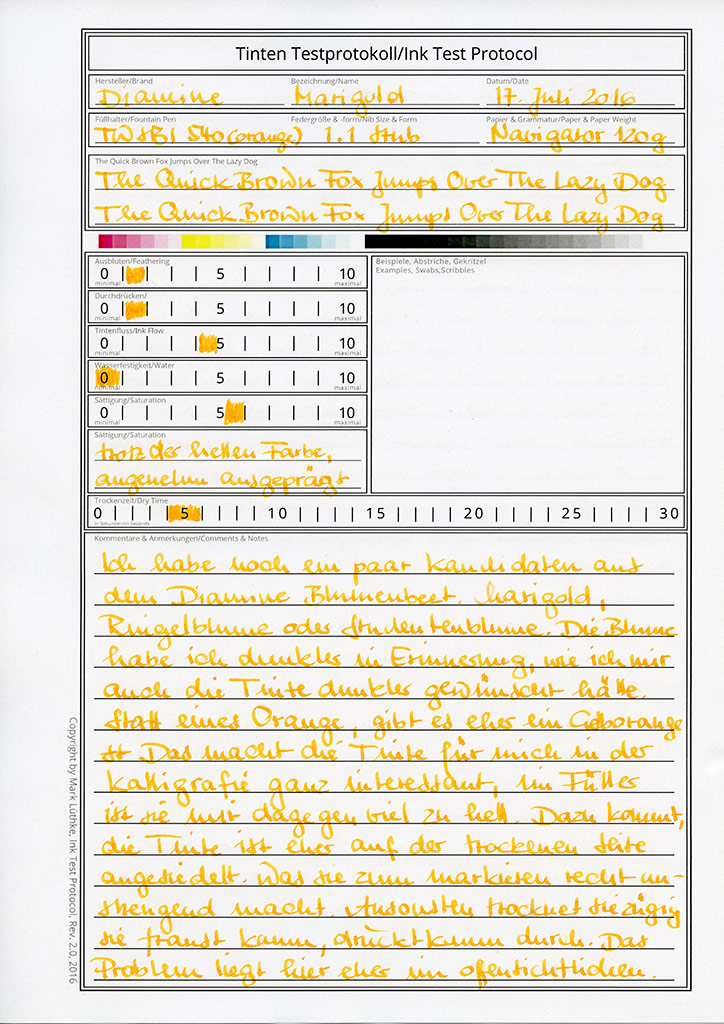 Tinten Testprotokoll/Ink Test Protocol
Hersteller/Brand Bezeichnung/Name Datum/Date
Diamine Marigold 17. Juli 2016
Füllhalter/Fountain Pen Federgröße & -form/Nib Size & Form Papier & Grammatur/Paper & Paper Weight
TWSBI 540 (orange) 1.1 Stub Navigator 120g
The Quick Brown Fox Jumps Over The Lazy Dog
The Quick Brown Fox Jumps Over The Lazy Dog
The Quick Brown Fox Jumps Over The Lazy Dog
Ausbluten/Feathering
0 | | | | 5 | | | | 10
minimal maximal
Durchdrücken/
0 | | | | 5 | | | | 10
minimal maximal
Tintenfluss/Ink Flow
0 | | | | 5 | | | | 10
minimal maximal
Wasserfestigkeit/Water
0 | | | | 5 | | | | 10
minimal maximal
Sättigung/Saturation
0 | | | | 5 | | | | 10
minimal maximal
Beispiele, Abstriche, Gekritzel
Examples, Swabs,Scribbles
Sättigung/Saturation
trotz der hellen Farbe,
angenehm ausgeprägt
Trockenzeit/Dry Time
0 | | | | 5 | | | | 10 | | | | 15 | | | | 20 | | | | 25 | | | | 30
in Sekunden/in Seconds
Kommentare & Anmerkungen/Comments & Notes
Ich habe noch ein paar Kandidaten aus
dem Diamine Blumenbeet. Marigold,
Ringelblume oder Studentenblume. Die Blume
habe ich dunkler in Erinnerung, wie ich mir
auch die Tinte dunkler gewünscht hätte.
Statt eines Orange, gibt es eher ein Gelborange
Das macht die Tinte für mich in der
Kalligrafie ganz interessant, im Füller
ist sie mir dagegen viel zu hell. Dazu kommt,
die Tinte ist eher auf der trockenen Seite
angesiedelt. Was sie zum markieren recht an-
strengend macht. Ansonsten trocknet sie zügig
sie franst kaum, drückt kaum durch. Das
Problem liegt hier eher im offensichtlichen.
Copyright by Mark Lüthke, Ink Test Protocol, Rev. 2.0, 2016